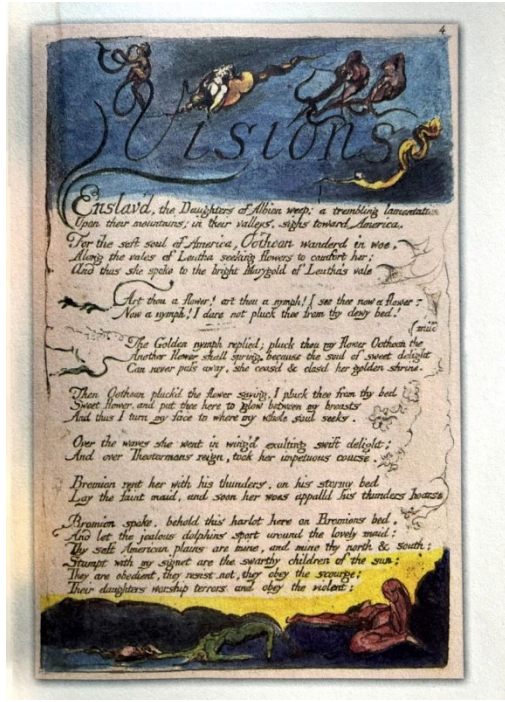 4
Visions
Enslav'd, the Daughters of Albion weep; a trembling lamentation
Upon their mountains; in their valleys, sighs toward America.
For the soft soul of America, Oothoon wanderd in woe,
Along the vales of Leutha seeking flowers to comfort her;
And thus she spoke to the bright Marygold of Leutha's vale
Art thou a flower! art thou a nymph! I see thee now a flower;
Now a nymph! I dare not pluck thee from thy dewy bed!
The Golden nymph replied; pluck thou my flower Oothoon the mild
Another flower shall spring, because the soul of sweet delight
Can never pass away, she ceas'd & clos'd her golden shrine.
Then Oothoon pluck'd the flower saying, I pluck thee from thy bed
Sweet flower, and put thee here to glow between my breasts
And thus I turn my face to where my whole soul seeks.
Over the waves she went in wing'd exulting swift delight;
And over Theotormans reign, took her impetuous course.
Bromion rent her with his thunders, on his stormy bed
Lay the faint maid, and soon her woes appalld his thunders hoarse
Bromion spoke, behold this harlot here on Bromions bed,
And let the jealous dolphins sport around the lovely maid;
Thy soft American plains are mine, and mine thy north & south:
Stampt with my signet are the swarthy children of the sun;
They are obedient, they resist not, they obey the scourge;
Their daughters worship terrors and obey the violent;